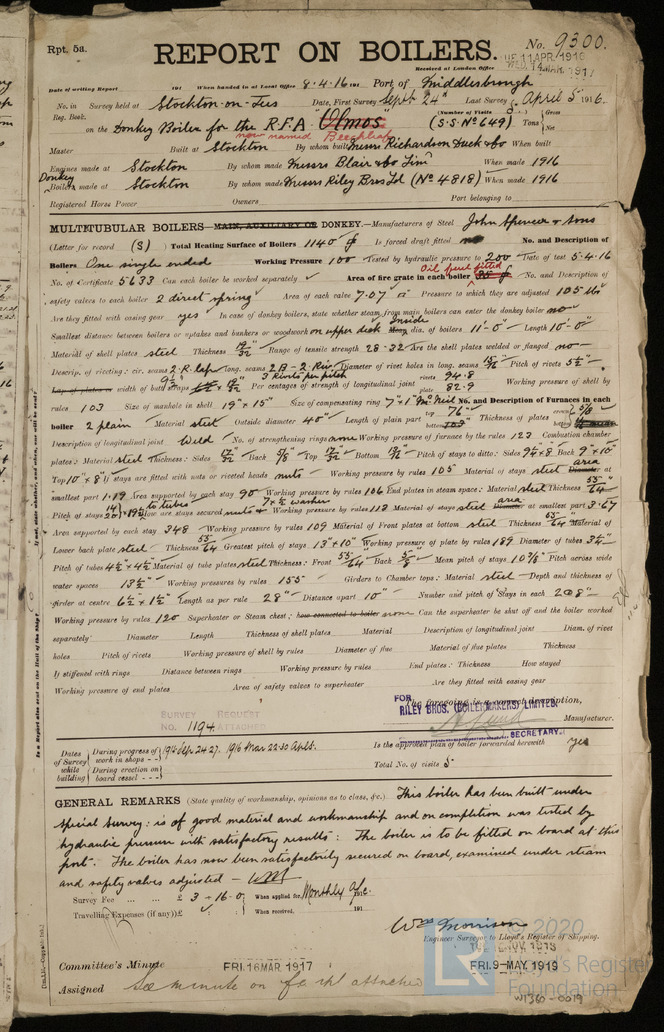 Rpt. 5a.
REPORT ON BOILERS.
No. 9300.
Received at London Office
Date of writing Report 191 When handed in at Local Office 8.4.16 191 Port of Middlesbrough
No. in Survey held at Stockton-on-Tees Date, First Survey Sept 24th Last Survey April 5 1916.
Reg. Book. (Number of Visits 5) Gross
on the Donkey Boiler for the R.F.A. Olmos (S.S. No 649) Tons Net
now named Beechleaf
Master Built at Stockton By whom built Messrs Richardson Duck & Co When built
Engines made at Stockton By whom made Messrs Blair & Co Limd When made 1916
Donkey Boiler made at Stockton By whom made Messrs Riley Bros Ld (No 4818) When made 1916
Registered Horse Power Owners Port belonging to
MULTITUBULAR BOILERS MAIN, AUXILIARY OR DONKEY.—Manufacturers of Steel John Spencer & Sons
(Letter for record (S)) Total Heating Surface of Boilers 1140 Is forced draft fitted no No. and Description of
Boilers One single ended Working Pressure 100 Tested by hydraulic pressure to 200 Date of test 5.4.16
Oil fuel fitted
No. of Certificate 5633 Can each boiler be worked separately Area of fire grate in each boiler No. and Description of
safety valves to each boiler 2 direct spring Area of each valve 7.07 Pressure to which they are adjusted 105 lbs
Are they fitted with easing gear yes In case of donkey boilers, state whether steam from main boilers can enter the donkey boiler no
Smallest distance between boilers or uptakes and bunkers or woodwork on upper deck Inside dia. of boilers 11'-0" Length 10'-0"
Material of shell plates steel Thickness 19/32 Range of tensile strength 28-32 Are the shell plates welded or flanged no
Descrip. of riveting: cir. seams 2.R.lap long. seams 2B-2Riv Diameter of rivet holes in long. seams 15/16 Pitch of rivets 5½"
3 Rivets per pitch
Lap of plates or width of butt straps Per centages of strength of longitudinal joint rivets 94.8 plate 82.9 Working pressure of shell by
rules 103 Size of manhole in shell 19" x 15" Size of compensating ring 7" x 1" McNeil No. and Description of Furnaces in each
boiler 2 plain Material steel Outside diameter 40" Length of plain part top 76" bottom Thickness of plates crown 5/8 bottom
Description of longitudinal joint Weld No. of strengthening rings none Working pressure of furnace by the rules 123 Combustion chamber
plates: Material steel Thickness: Sides 19/32 Back 5/8 Top 19/32 Bottom Pitch of stays to ditto: Sides 9½ x 8 Back 9 x 10
Top 10" x 8" If stays are fitted with nuts or riveted heads nuts Working pressure by rules 105 Material of stays steel area Diameter at
smallest part 1.19 Area supported by each stay 90 Working pressure by rules 106 End plates in steam space: Material steel Thickness 55/64
Pitch of stays How are stays secured nuts & Working pressure by rules 113 Material of stays steel area Diameter at smallest part 3.67
Area supported by each stay 348 Working pressure by rules 109 Material of Front plates at bottom steel Thickness 55/64 Material of
Lower back plate steel Thickness 55/64 Greatest pitch of stays 13" x 10" Working pressure of plate by rules 189 Diameter of tubes 3¼"
Pitch of tubes 4½ x 4½ Material of tube plates steel Thickness: Front 55/64 Back 5/8 Mean pitch of stays 10⅞" Pitch across wide
water spaces 13½" Working pressures by rules 155 Girders to Chamber tops: Material steel Depth and thickness of
girder at centre 6½ x 1½" Length as per rule 28" Distance apart 10" Number and pitch of Stays in each 2 @ 8"
Working pressure by rules 120 Superheater or Steam chest; how connected to boiler none Can the superheater be shut off and the boiler worked
separately Diameter Length Thickness of shell plates Material Description of longitudinal joint Diam. of rivet
holes Pitch of rivets Working pressure of shell by rules Diameter of flue Material of flue plates Thickness
If stiffened with rings Distance between rings Working pressure by rules End plates: Thickness How stayed
Working pressure of end plates Area of safety valves to superheater Are they fitted with easing gear
The foregoing is a correct description,
FOR RILEY BROS. (BOILERMAKERS) LIMITED.
Manufacturer.
SECRETARY.
SURVEY REQUEST
NO. 1194 ATTACHED
Dates of Survey while building
During progress of work in shops - - 1914 Sep 24.27. 1916 Mar 22.30 Apl 5.
During erection on board vessel - - -
Is the approved plan of boiler forwarded herewith yes
Total No. of visits 5
GENERAL REMARKS (State quality of workmanship, opinions as to class, &c.) This boiler has been built under
special survey: is of good material and workmanship and on completion was tested by
hydraulic pressure with satisfactory results: The boiler is to be fitted on board at this
port. The boiler has now been satisfactorily secured on board, examined under steam
and safety valves adjusted - WM
Survey Fee ... ... £ 3-16-0 When applied for, Monthly a/c. 191
Travelling Expenses (if any) £ When received, 191
Wm Morrison
Engineer Surveyor to Lloyd's Register of Shipping.
Committee's Minute FRI. 16 MAR 1917 FRI. 9-MAY. 1919
Assigned See minute on attached
© 2020
Lloyd's Register
Foundation
W1360-0019